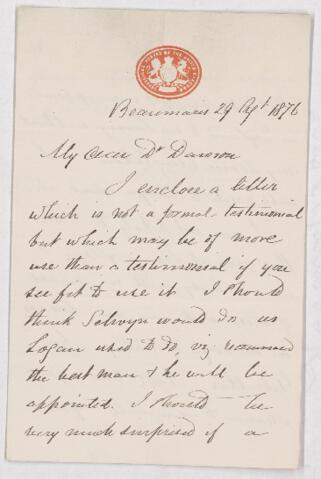 Beaumaris 29 Agt 1876
My dear Dr Dawson
I enclose a letter
which is not a formal testimonial
but which may be of more
use than a testimonial if you
see fit to use it. I should
think Selwyn would do as
Logan used to do, viz recommend
the best man & he will be
appointed. I should be
very much surprised if a